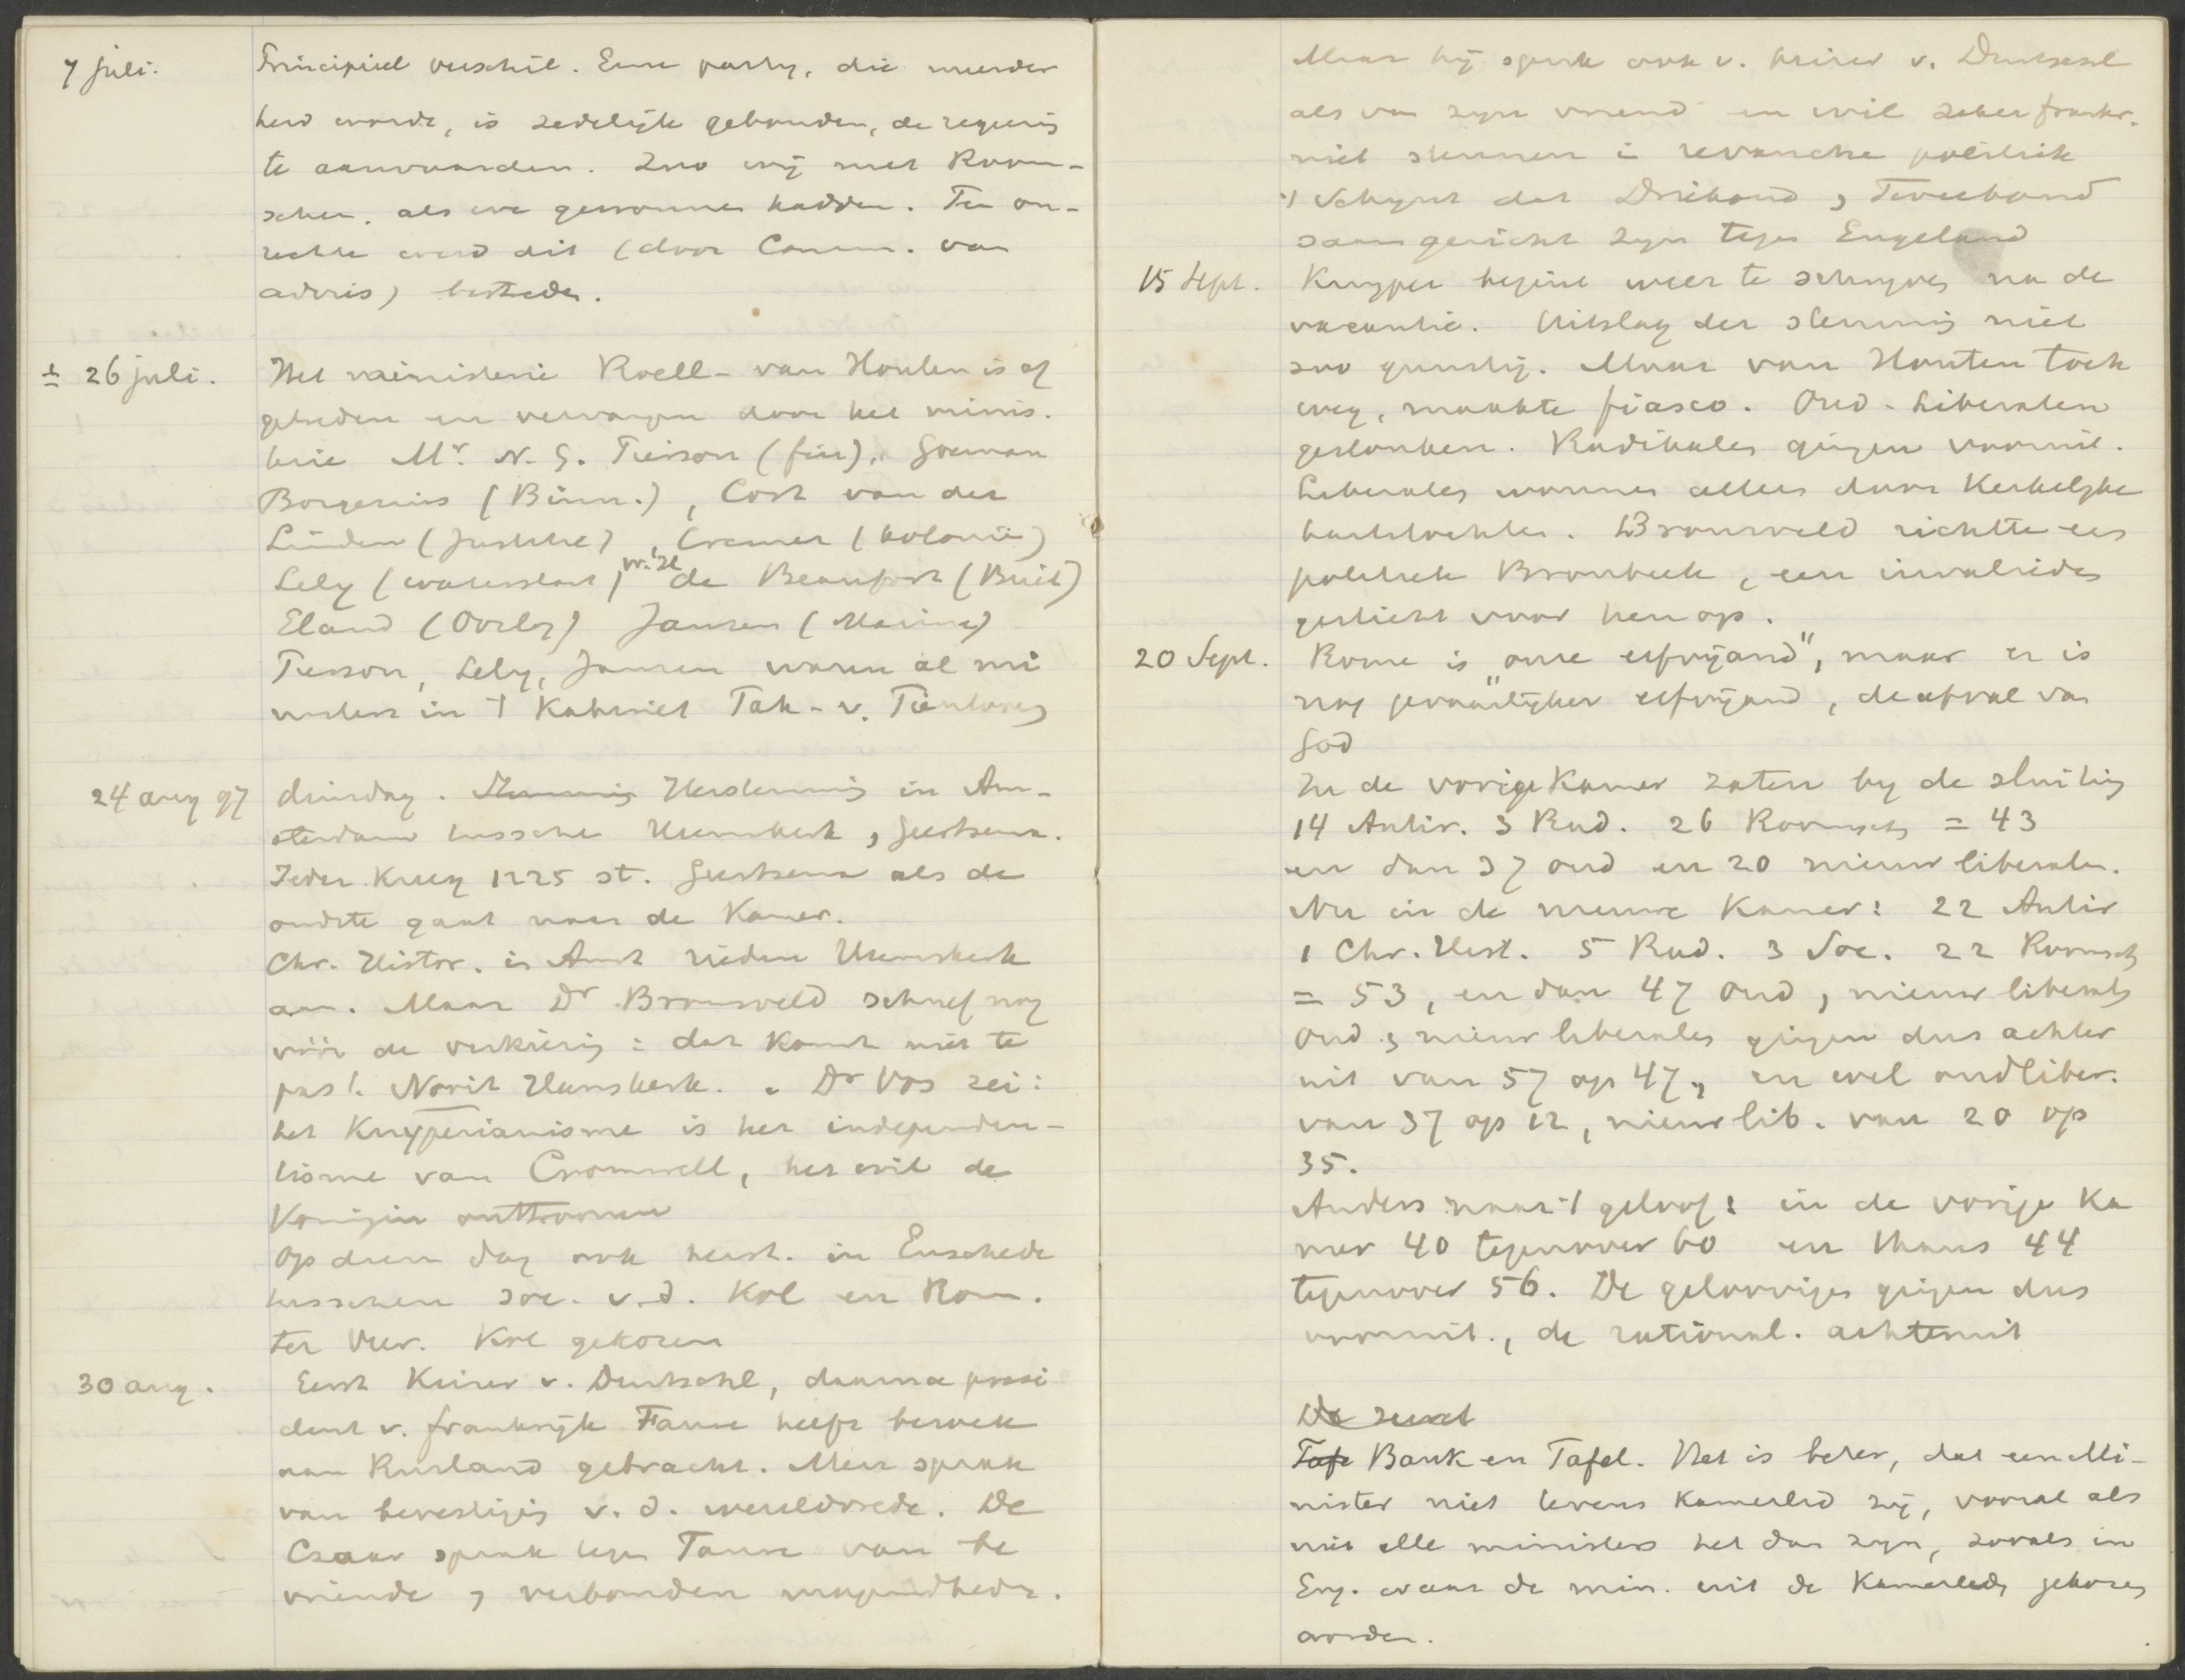 7 juli. Principieel verschil. Eene party, die meerder
heid werde, is zedelijk gebonden, de regeering
te aanvaarden. Zoo wij met Room-
schen. als we gewonnen hadden. Ten on-
rechte werd dit (door Comm. van
advies) bestreden.
± 26 juli. Het ministerie Roell - van Houten is af
getreden en vervangen door het minis.
terie Mr. N. G. Pierson (fin), Goeman
Borgesius (Binn.), Cort van der
Linden (Justitie), Cremer (kolonië)
Lely (waterstaat) W. H. de Beaufort (Buit)
Eland (Oorlog) Jansen (Marine)
Pierson, Lely, Jansen waren al mi
nisters in 't Kabinet Tak - v. Tienhoven
24 aug 97 dinsdag. Stemming Herstemming in Am-
sterdam tussche Heemskerk , Geertsema.
Ieder kreeg 1225 st. Geertsema als de
oudste gaat naar de Kamer.
Chr. Histor. in Amst rieden Heemskerk
aan. Maar Dr Bronsveld schreef nog
vóór de verkiezing : dat komt niet te
pas!. Nooit Heemskerk. . Dr Vos zei:
het Kuyperianisme is het independen-
tisme van Cromwell, het wil de
Konigin onttroonen
Op dien dag ook herst. in Enschede
tusschen soc. v. d. Kol en Room.
ter Veer. Kol gekozen
30 aug. Eerst Keizer v. Duitschl, daarna presi
dent v. frankrijk Faure heeft bezoek
aan Rusland gebracht. Men sprak
van bevestiging v. d. wereldvrede. De
Czaar sprak tegen Faure van be
vriende , verbonden mogendheden.
Maar hij sprak ook v. keizer v. Duitschl
als van zyn vriend en wil zeker frankr.
niet steunen i revanche politiek
't Schynt dat Driebond , Tweebond
saam gericht zyn tegen Engeland
15 Sept. Kuyper begint weer te schryven na de
vacantie. Uitslag der stemming niet
zoo gunstig. Maar van Houten toch
weg, maakte fiasco. Oud - Liberalen
geslonken. Radikalen gingen vooruit.
Liberalen wonnen alleen door Kerkelyke
hartstochten. Bronsveld richtte een
politiek Bronbeek , een invaliden
gesticht voor hen op.
20 Sept. Rome is "onze erfvijand", maar er is
nog "gevaarlijker erfvijand , de afval van
God
In de vorige Kamer zaten by de sluiting
14 Antir. 3 Rad. 26 Roomsch = 43
en dan 37 oud en 20 nieuw liberalen.
Nu in de nieuwe Kamer : 22 Antir
1 Chr. Hist. 5 Rad. 3 Soc. 22 Roomsch
= 53 , en dan 47 oud , nieuw liberals
Oud , nieuw liberalen gingen dus achter
uit van 57 op 47, en wel oudliber.
van 37 op 12 , nieuwlib. van 20 op
35.
Anders naar 't geloof : in de vorige Ka
mer 40 tegenover 60 en thans 44
tegenover 56. De geloovigen gingen dus
vooruit., de rational. achteruit
De
Tafe Bank en Tafel. Het is beter, dat een Mi-
nister niet tevens Kamerlid zij, vooral als
niet alle ministers het dan zyn, zooals in
Eng. waar de min. uit de Kamerleden gekozen
worden.